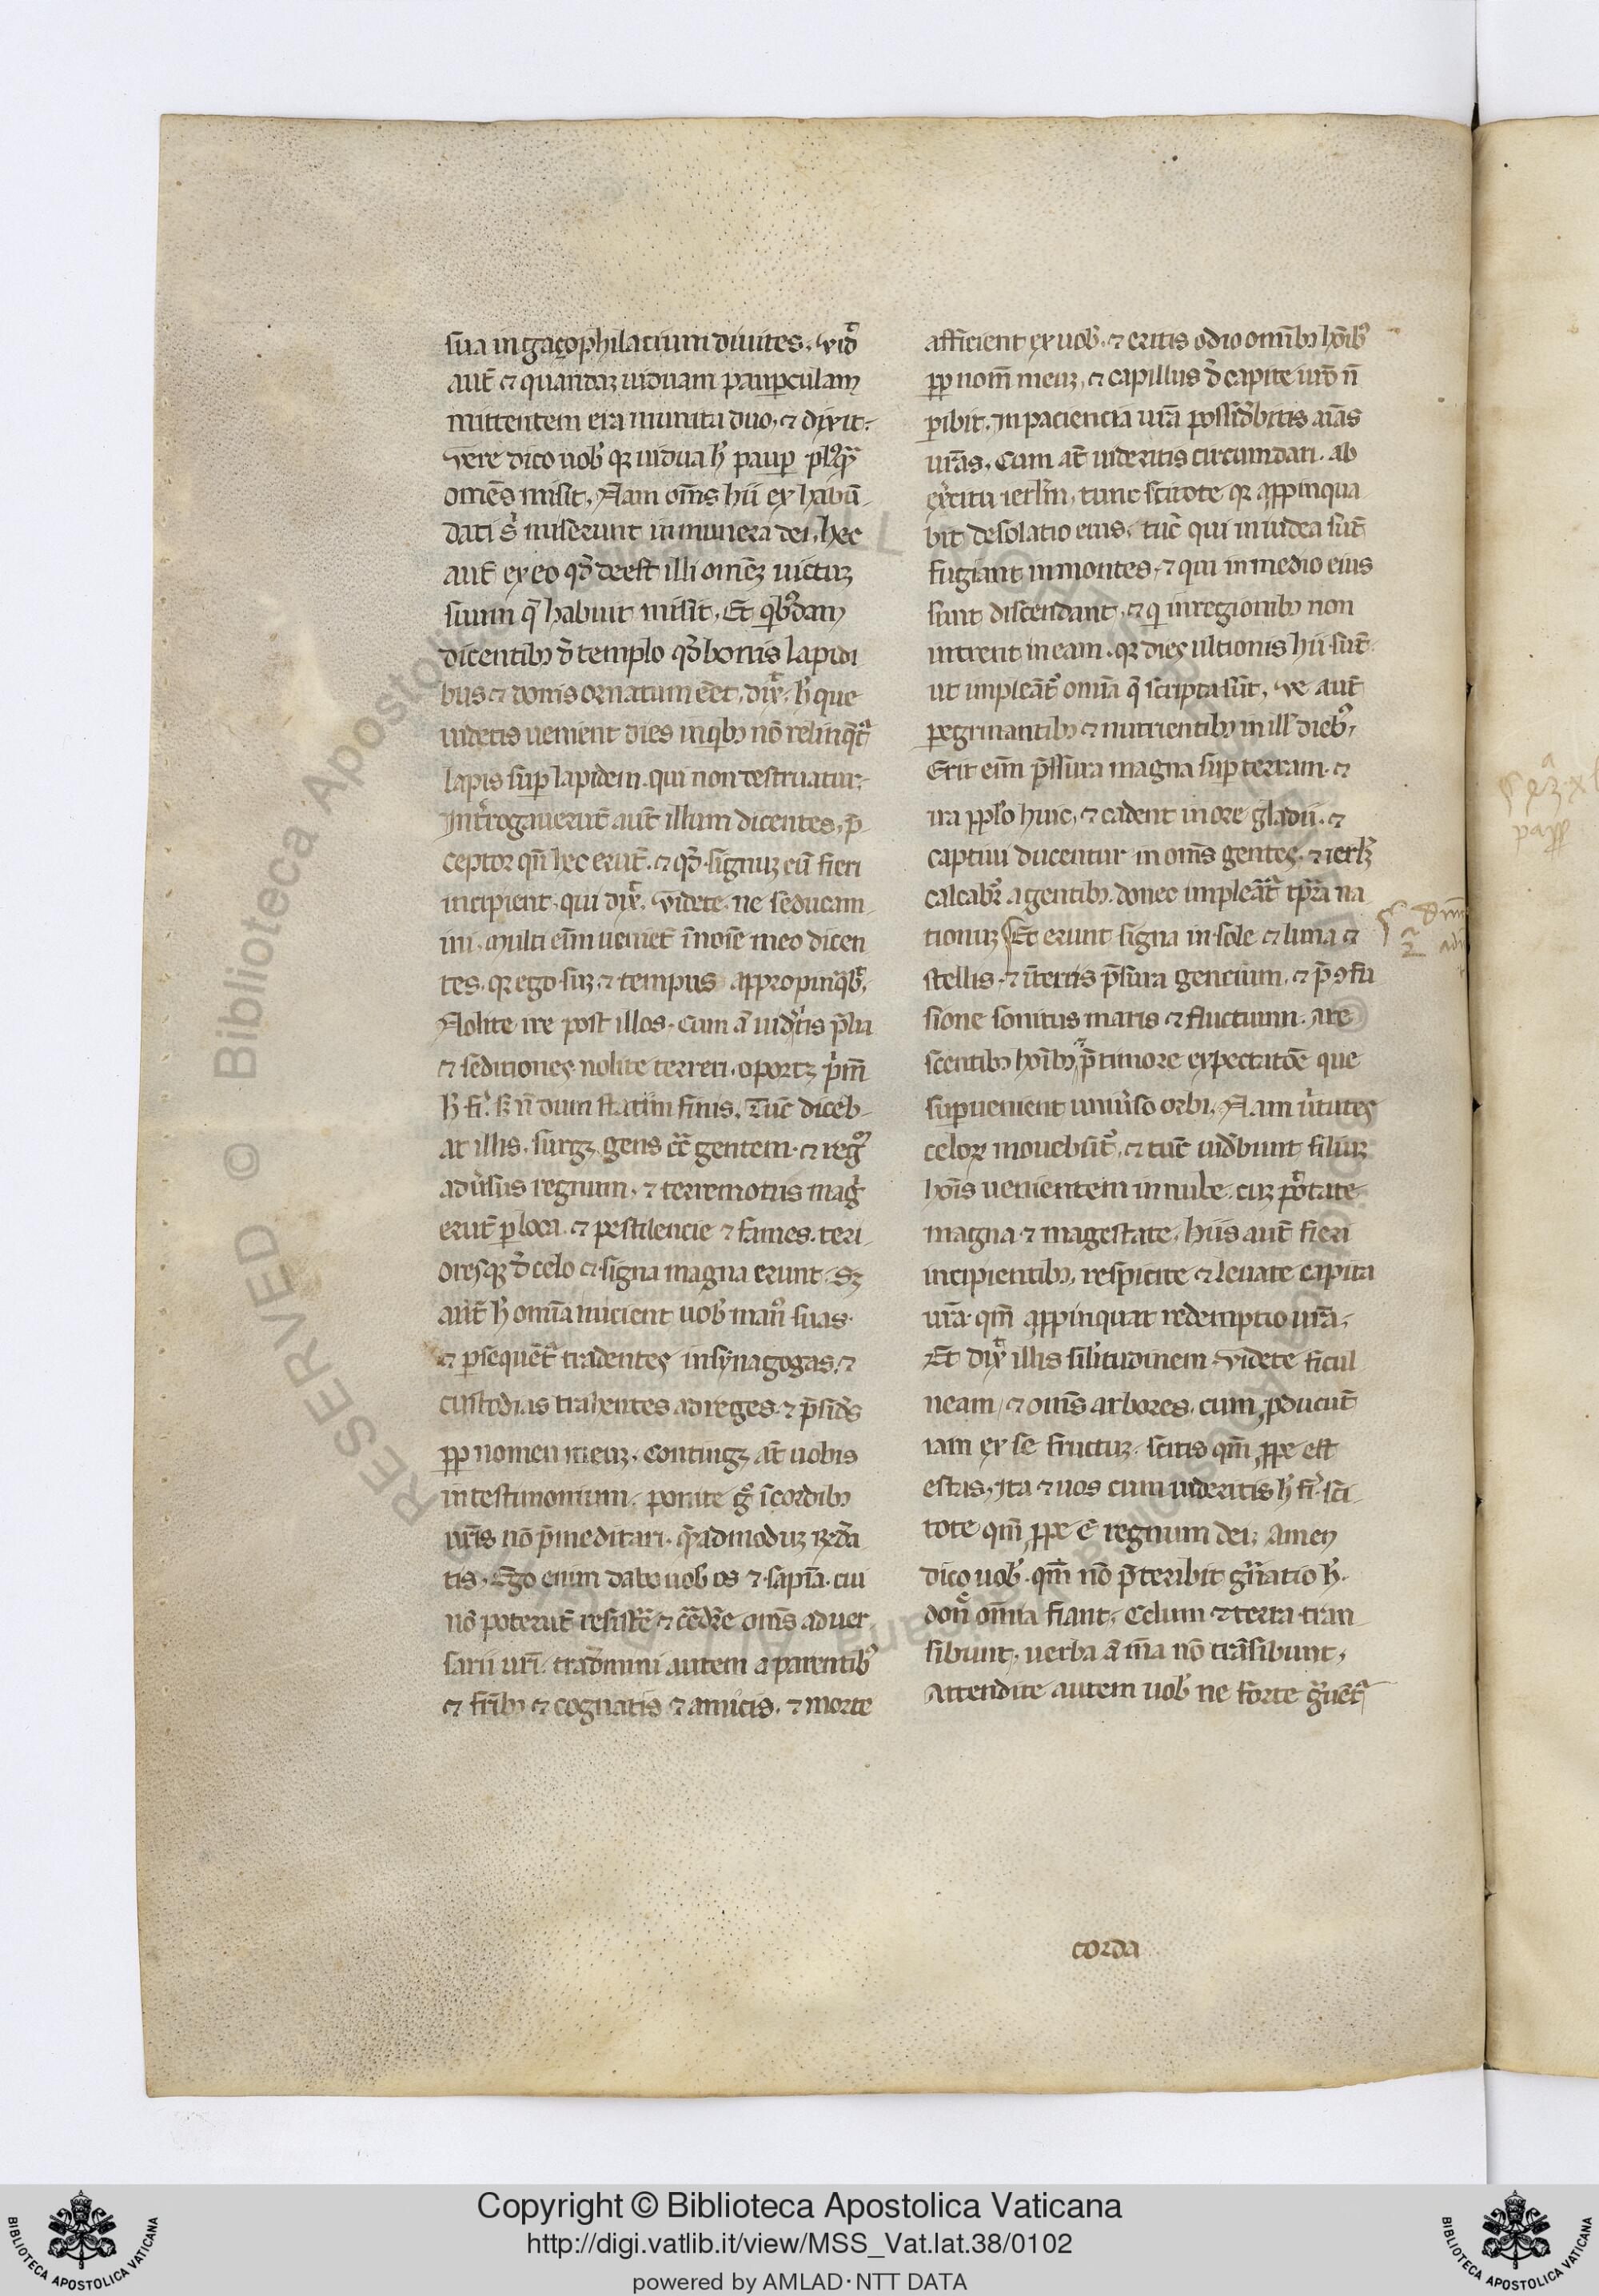 sua in gaçophilacium diuites. vid͛
aut̄ ⁊ quandaꝫ uiduam paupculam
mittentem era munita duo. ⁊ dixit.
vere dico uob̓ qꝛ uidua h̓ paup̲ pl᷒qᷓ
omēs misit. Nam om̄s hii ex habū
dāti s̓ miserunt in munera dei. hec
aut̄ ex eo qd̓ deest illi omēꝫ uictuꝫ
suum q̄ habuit misit. Et qb᷒dam
dicentibꝫ d̓ templo qd̓ bonis lapidi
bus ⁊ donis ornatum eēt. dix̓. h̓ que
uidetis uenient dies in qibꝫ nō relinq̄t᷑
lapis sup̲ lapidem. qui non destruatur.
Int̓rogauerūt aut̄ illum dicentes. p̄
ceptor qn̄ hec erūt. ⁊ qd̓ signuꝫ cū fieri
incipient. qui dix̓. videte ne seducam
ini. multi eīm ueniēt ī noīe meo dicen
tes. qꝛ ego suꝫ. ⁊ tempus appropinqb̓.
Nolite ire post illos. cum a̓ uid̓itis p̄lia
⁊ seditiones nolite terreri. oportꝫ p̓m̄
h̓ fi̓. sꝫ n̄ dum statim finis. Tūc diceb
at illis. surgꝫ gens cͨ gentem. ⁊ regᷓ᷒
adu̓sus regnum. ⁊ terremotus mag̓
erūt p̲ loca. ⁊ pestilencie ⁊ fames. terri
oresqꝫ d̓ celo ⁊ signa magna erunt. Sꝫ
an̄t h̓ omīa inicient uob̓ man᷒ suas.
⁊ p̲sequēt᷑ tradentes in synagogas. ⁊
custodias trahentes ad reges. ⁊ p̄sid̓s
pp̲ nomen meuꝫ. continget aūt uobis
in testimonium. ponite g̊ ī cordibꝫ
urīs nō p̄meditari. q̄admoduꝫ r̄ndea
tis. Ego enim dabo uob̓ os ⁊ sapīa. cui
nō poterūt resistr̄e ⁊ cͣdr̄e om̄s aduer
sarii urī. trad̓mini autem a parentib᷒
⁊ fr̄ibꝫ ⁊ cognatis ⁊ amicis. ⁊ morte
afficient ex uob̓. ⁊ eritis odio omībꝫ hōib᷒
pp̲ nom̄ meuꝫ. ⁊ capillus d̓ capite ur̄o n̄
p̲ibit. In paciencia urā possid̓bitis aīas
urās. Cum aūt uideritis circumdari ab
ex̓citu ierl̄m. tunc scitote qꝛ app̲inqua
bit desolatio eius. tūc qui in iudea sūt
fugiant in montes. ⁊ qui in medio eius
sunt discendant. ⁊ q̓ in regionibꝫ non
intrent in eam. qꝛ dies ultionis hii sūt.
ut impleāt᷑ omīa q̄ scripta sūt. ve aut̄
p̲egrinantibꝫ ⁊ nutrientibꝫ in ill̓ dieb᷒.
Erit eīm p̄ssura magna sup̲ terram. ⁊
ira pplo huic. ⁊ cadent in ore gladii. ⁊
captiui ducentur in om̄s gentes. ⁊ ierl̄ꝫ
calcab᷑ a gentibꝫ. donec impleāt᷑ tp̲ra na
tionuꝫ Et erunt signa in sole ⁊ luna ⁊
stellis. ⁊ ī terris p̄sura gencium. ⁊ p̄ ꝯfu
sione sonitus maris ⁊ fluctuum. are
scentibꝫ hōibꝫ p̄ timore expectatōe que
sup̲uenient uniu̓so orbi. Nam u̓tutes
celoꝝ mouebūt᷑. ⁊ tūc uid̓bunt filiuꝫ
hoīs uenientem in nube. cuꝫ p̲o̓tate
magna ⁊ magestate. hiis aut̄ fieri
incipientibꝫ. respicite ⁊ leuate capita
urā. qm̄ app̲inquat redemptio urā.
Et dix̓ illis sil̓itudinem. videte ficul
neam. ⁊ om̄s arbores. cum p̲ducūt
iam ex se fructuꝫ. scitis qm̄ p̲pe est
estas. Ita ⁊ uos cum uideritis h̓ fi̓. sci
tote qm̄ p̲pe ē regnum dei. Amen
dico uob̓. qm̄ nō p̄teribit gn̓atio h̓.
don̄ omīa fiant. Celum ⁊ terra tran
sibunt. uerba a̓ m̄a nō trāsibunt.
Attendite autem uob̓ ne forte gͣuēt᷑
corda
Copyright © Biblioteca Apostolica Vaticana
http://digi.vatlib.it/view/MSS_Vat.lat.38/0102
powered by AMLAD·NTT DATA
BIBLIOTECA APOSTOLICA VATICANA
BIBLIOTECA APOSTOLICA VATICANA